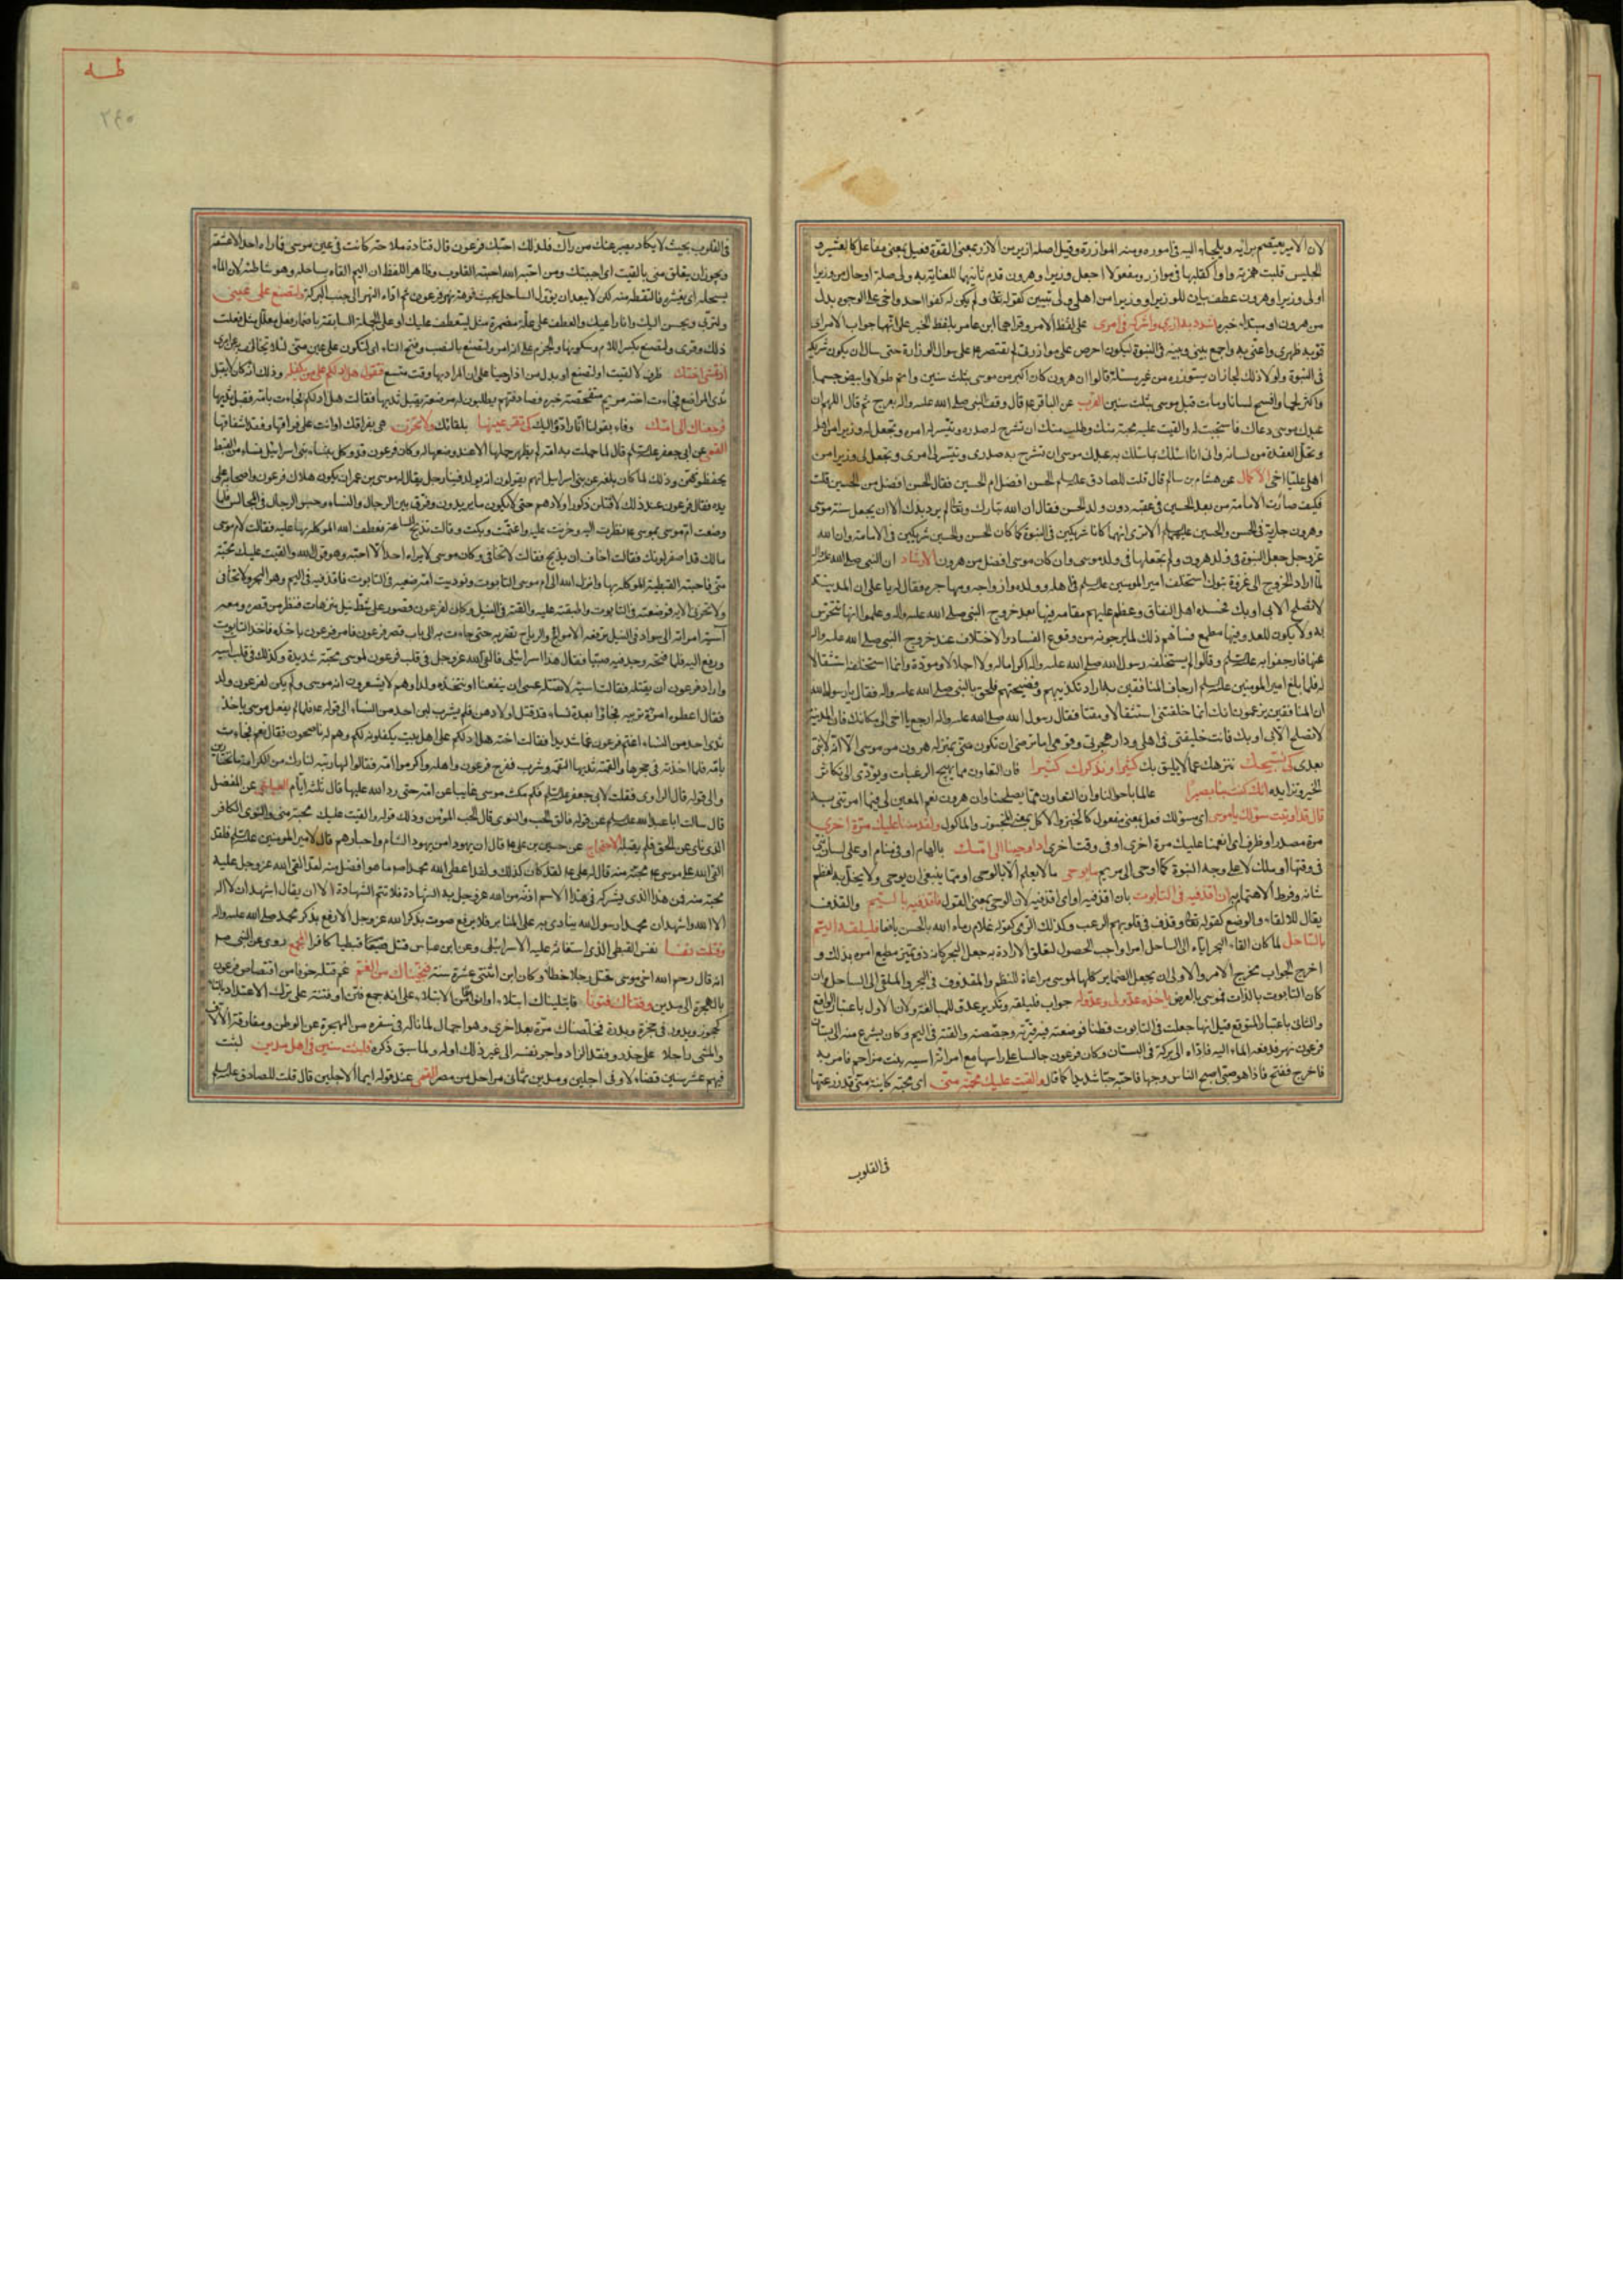 لان الامير يعتصم برأيه ويلتجاء اليه فى اموره ومنه الموازرة وقيل اصله ازير من الازر بمعنى القوة فعيل بمعنى مفاعل كالعشير و
الجليس قلبت همزته واوا كقلبها فى موازر ومفعولا اجعل وزيرا وهرون قدم ثانيهما للعناية به ولى صلة او حال من وزيرا
اولى وزيرا وهرون عطف بيان للوزير او وزيرا من اهلى ولى تبيين كقوله تعا ولم يكن له كفوا احد واخى على الوجوه بدل
من هرون او مبتداء خبره اشدد به ازرى واشركه فى امرى على لفظ الامر وقراهما ابن عامر بلفظ الخبر على انهما جواب الامر اى
قو به ظهرى واعنى به واجمع بينى وبينه فى النبوة ليكون احرص على موازرتى لم يقتصر على سوال الوزارة حتى سال ان يكون شريكه
فى النبوة ولولا ذلك لجاز ان يستوزره من غير مسئلة قالوا ان هرون كان اكبر من موسى بثلث سنين واتم طولا وابيض جسما
واكثر لحما وافصح لسانا ومات قبل موسى بثلث سنين عن الباقر ع قال وقف النبى صلى الله عليه واله بعرج ثم قال اللهم ان
عبدك موسى دعاك فاستجبت له والقيت عليه محبة منك وطلب منك ان تشرح له صدره وتيسر له امره وتجعل له وزيرا من اهله
وتحل العقدة من لسانه وانى انا اسئلك بما سئلك به عبدك موسى ان تشرح به صدرى وتيسر لى امرى وتجعل لى وزيرا من
اهلى عليا اخى الاكمال عن هشام بن سالم قال قلت للصادق عليه السلم الحسن افضل ام الحسين فقال الحسن افضل من الحسين قلت
فكيف صارت الامامة من بعد الحسين فى عقبه دون ولد الحسن فقال ان الله تبارك وتعالى لم يرد بذلك الا ان يجعل سنة موسى
وهرون جارية فى الحسن والحسين عليهما السلم الا ترى انهما كانا شريكين فى النبوة كما كان الحسن والحسين شريكين فى الامامة وان الله
عز وجل جعل النبوة فى ولد هرون ولم يجعلها فى ولد موسى وان كان موسى افضل من هرون الارشاد ان النبى صلى الله عليه واله
لما اراد الخروج الى غزوة تبوك استخلف امير المومنين عليه السلم فى اهله وولده وازواجه ومهاجره فقال له يا على ان المدينة
لا تصلح الا بى او بك فحسده اهل النفاق وعظم عليهم مقامه فيها بعد خروج النبى صلى الله عليه واله وعلموا انها تتحرس
به ولا يكون للعدو فيها مطمع فساءهم ذلك لما يرجونه من وقوع الفساد والاختلاف عند خروج النبى صلى الله عليه واله
عنها فارجفوا به عليه السلم وقالوا لم يستخلفه رسول الله صلى الله عليه واله اكراما له ولا اجلالا ومودة وانما استخلفه استثقالا
له فلما بلغ امير المومنين عليه السلم ارجاف المنافقين به اراد تكذيبهم وفضيحتهم فلحق بالنبى صلى الله عليه واله فقال يا رسول الله
ان المنافقين يزعمون انك انما خلفتنى استثقالا ومقتا فقال رسول الله صلى الله عليه واله ارجع يا اخى الى مكانك فان المدينة
لا تصلح الا بى او بك فانت خليفتى فى اهلى ودار هجرتى وقومى اما ترضى ان تكون منى بمنزلة هرون من موسى الا انه لا نبى
بعدى كى نسبحك ننزهك عما لا يليق بك كثيرا ونذكرك كثيرا فان التعاون مما يهيج الرغبات ويؤدى الى تكاثر
الخير وتزايده انك كنت بنا بصيرا عالما باحوالنا وان التعاون مما يصلحنا وان هرون نعم المعين لى فيما امرتنى به
قال قد اوتيت سؤلك يا موسى اى مسؤلك فعل بمعنى مفعول كالخبز والاكل بمعنى المخبوز والماكول ولقد مننا عليك مرة اخرى
مرة مصدر او ظرف اى انعمنا عليك مرة اخرى او فى وقت اخرى اذ اوحينا الى امك بالهام او فى منام او على لسان نبى
فى وقتها او ملك لا على وجه النبوة كما اوحى الى مريم ما يوحى ما لا يعلم الا بالوحى او مما ينبغى ان يوحى ولا يخل به لعظم
شانه وفرط الاهتمام به ان اقذفيه فى التابوت بان اقذفيه او اى اقذفيه لان الوحى بمعنى القول فاقذفيه فى اليم والقذف
يقال للالقاء وللوضع كقوله تعا وقذف فى قلوبهم الرعب وكذلك الرمى كقوله غلام رماه الله بالحسن يافعا فليلقه اليم
بالساحل لما كان القاء البحر اياه الى الساحل امرا واجب الحصول لتعلق الارادة به جعل البحر كانه ذو تميز مطيع امره بذلك و
اخرج الجواب مخرج الامر والاولى ان يجعل الضماير كلها لموسى مراعاة للنظم والمقذوف فى البحر والملقى الى الساحل وان
كان التابوت بالذات فموسى بالعرض ياخذه عدو لى وعدو له جواب فليلقه وتكرير عدو للمبالغة ولان الاول باعتبار الواقع
والثانى باعتبار المتوقع قيل انها جعلت فى التابوت قطنا فوضعته فيه وقيرته وجصصته والقته فى اليم وكان يشرع منه الى بستان
فرعون نهر فدفعه الماء اليه فاداه الى بركة فى البستان وكان فرعون جالسا على راسها مع امراته اسيه بنت مزاحم فامر به
فاخرج ففتح فاذا هو صبى اصبح الناس وجها فاحبه حبا شديدا كما قال والقيت عليك محبة منى اى محبة كاينة منى قد زرعتها
فى القلوب
طه
٢٤٠
فى القلوب بحيث لا يكاد يصبر عنك من راك فلذلك احبك فرعون قال قتادة ملاحة كانت فى عين موسى فما راه احد الا عشقه
ويجوز ان يعلق منى بالقيت اى احببتك ومن احبه الله احبته القلوب وظاهر اللفظ ان اليم القاه بساحله وهو شاطئه لان الماء
يسحله اى يقشره فالتقطه منه لكن لا يبعد ان يؤول الساحل بجنب فوهة نهر فرعون ثم اداه النهر الى جنب البركة ولتصنع على عينى
ولتربى ويحسن اليك وانا راعيك والعطف على علة مضمرة مثل ليتعطف عليك او على الجملة السابقة باضمار فعل معلل مثل فعلت
ذلك وقرئ ولتصنع بكسر اللام وسكونها والجزم على انه امر ولتصنع بالنصب وفتح التاء اى لتكون على عين منى لئلا تخالف به عن امرى
اذ تمشى اختك ظرف لالقيت او لتصنع او بدل من اذ اوحينا على ان المراد بها وقت متسع فتقول هل ادلكم على من يكفله وذلك انه كان لا يقبل
ثدى المراضع فجاءت اخته مريم متفحصة خبره فصادفتهم يطلبون له مرضعة يقبل ثديها فقالت هل ادلكم فجاءت بامه فقبل ثديها
فرجعناك الى امك وفاء بقولنا انا رادوه اليك كى تقر عينها بلقائك ولا تحزن هى بفراقك او انت على فراقها وفقد اشفاقها
القمى عن ابى جعفر عليه السلم قال لما حملت به امه لم يظهر حملها الا عند وضعها له وكان فرعون قد وكل بنساء بنى اسرائيل نساء من القبط
يحفظونهن وذلك لما كان بلغه عن بنى اسرائيل انهم يقولون انه يولد فينا رجل يقال له موسى بن عمران يكون هلاك فرعون واصحابه على
يده فقال فرعون عند ذلك لاقتلن ذكور اولادهم حتى لا يكون ما يريدون وفرق بين الرجال والنساء وحبس الرجال فى المحابس فلما
وضعت ام موسى بموسى ع نظرت اليه وحزنت عليه واغتمت وبكت وقالت تذبح الساعة فعطف الله الموكلة بها عليه فقالت لام موسى
مالك قد اصفر لونك فقالت اخاف ان يذبح فقالت لا تخافى وكان موسى لا يراه احد الا احبه وهو قول الله والقيت عليك محبة
منى فاحبته القبطية الموكلة بها وانزل الله الى ام موسى التابوت ونوديت امه ضعيه فى التابوت فاقذفيه فى اليم وهو البحر ولا تخافى
ولا تحزنى الاية فوضعته فى التابوت واطبقته عليه والقته فى النيل وكان لفرعون قصور على شط نيل متنزهات فنظر من قصره ومعه
آسية امراته الى سواد فى النيل ترفعه الامواج والرياح تضربه حتى جاءت به الى باب قصر فرعون فامر فرعون باخذه فاخذ التابوت
ورفع اليه فلما فتحه وجد فيه صبيا فقال هذا اسرائيلى فالقى الله عز وجل فى قلب فرعون لموسى محبة شديدة وكذلك فى قلب اسية
واراد فرعون ان يقتله فقالت اسية لا تقتله عسى ان ينفعنا او نتخذه ولدا وهم لا يشعرون انه موسى ولم يكن لفرعون ولد
فقال اطلبوا ظئرا تربيه فجاؤا بعدة نساء قد قتل اولادهن فلم يشرب لبن احد من النساء الى قوله ع فلما لم يقبل موسى ياخذ
ثدى احد من النساء اغتم فرعون غما شديدا فقالت اخته هل ادلكم على اهل بيت يكفلونه لكم وهم له ناصحون فقال نعم فجاءت
بامه فلما اخذته فى حجرها والقمته ثديها التقمه وشرب ففرح فرعون واهله واكرموا امه فقالوا لها ربيه لنا ولك من الكرامة ما تختارين
والى قوله قال الراوى فقلت لابى جعفر عليه السلم فكم مكث موسى غايبا عن امه حتى رد الله عليها قال ثلثة ايام العياشى عن المفضل
قال سالت ابا عبد الله عليه السلم عن قوله فالق الحب والنوى قال الحب المؤمن وذلك قوله والقيت عليك محبة منى والنوى الكافر
الذى ناى عن الحق فلم يقبله الاحتجاج عن حسين بن على ع قال ان يهوديا من يهود الشام واحبارهم قال لامير المومنين عليه السلم فلقد
القى الله على موسى ع محبة منه قال له على ع لقد كان كذلك ولقد اعطى الله محمدا ص ما هو افضل منه لقد القى الله عز وجل عليه
محبة منه فمن هذا الذى يشركه فى هذا الاسم اذ تم من الله عز وجل به الشهادة فلا تتم الشهادة الا ان يقال اشهد ان لا اله
الا الله واشهد ان محمدا رسول الله ينادى به على المنابر فلا يرفع صوت بذكر الله عز وجل الا رفع بذكر محمد صلى الله عليه واله
وقتلت نفسا نفس القبطى الذى استغاثه عليه الاسرائيلى وعن ابن عباس قتل قبطيا كافرا المجمع روى عن النبى ص
انه قال رحم الله اخى موسى قتل رجلا خطأ وكان ابن اثنتى عشرة سنة فنجيناك من الغم غم قتله خوفا من اقتصاص فرعون
بالهجرة الى مدين وفتناك فتونا فابتليناك ابتلاء او انواعا من الابتلاء على انه جمع فتن او فتنة على ترك الاعتداد بالتاء
كحجوز وبدور فى حجزة وبدرة فخلصناك مرة بعد اخرى وهو اجمال لما ناله فى سفره من الهجرة عن الوطن ومفارقة الالاف
والمشى راجلا على حذر وفقد الزاد واجر نفسه الى غير ذلك او له ولما سبق ذكره فلبثت سنين فى اهل مدين لبثت
فيهم عشر سنين قضاء لاوفى اجلين ومدين ثمانى مراحل من مصر القمى عند قوله ايما الاجلين قال قلت للصادق عليه السلم